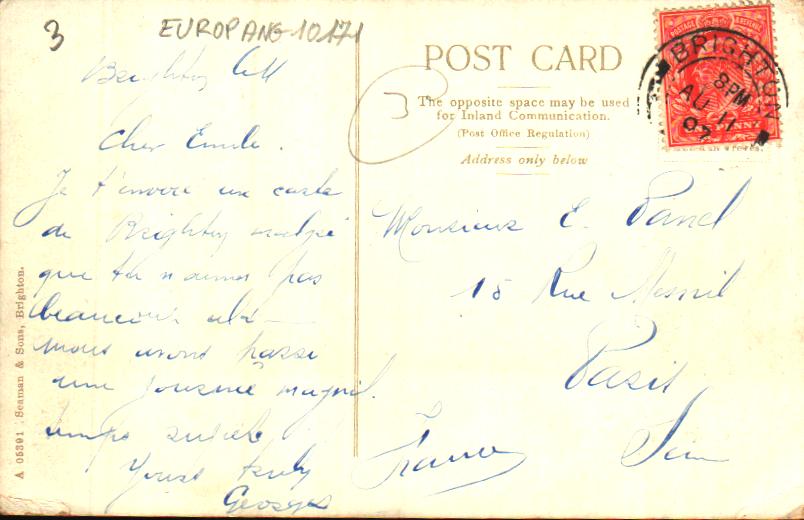 3
EUROPANG-10171
Brighton
Cher Emile.
Je t'envoie une carte
de Brighton malgré
que tu n'aimes pas
beaucoup
nous avons passé
une journée magnif.
temps superbe
Yours truly
Georges
A 05391 Seaman & Sons, Brighton.
POST CARD
3
The opposite space may be used
for Inland Communication.
(Post Office Regulation)
Address only below
POSTAGE & REVENUE
BRIGHTON
8 PM
AU 11
07
PENNY
Monsieur E. Panel
15 Rue Mesnil
Paris
France